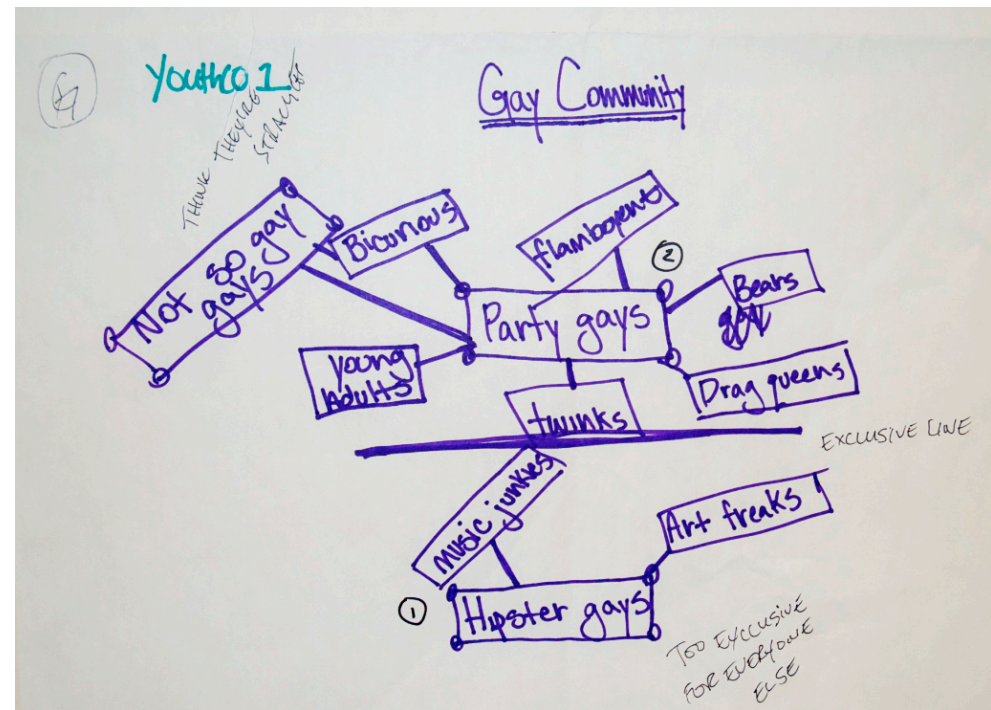 Youthco 1
Gay Community
THINK THEY'RE
STRAIGHT
Not so gay
gays
Bicurious
flamboyent
2
Bears
Party gays
young
Adults
Drag queens
twinks
EXCLUSIVE LINE
music junkies
Art freaks
1
Hipster gays
TOO EXCLUSIVE
FOR EVERYONE
ELSE